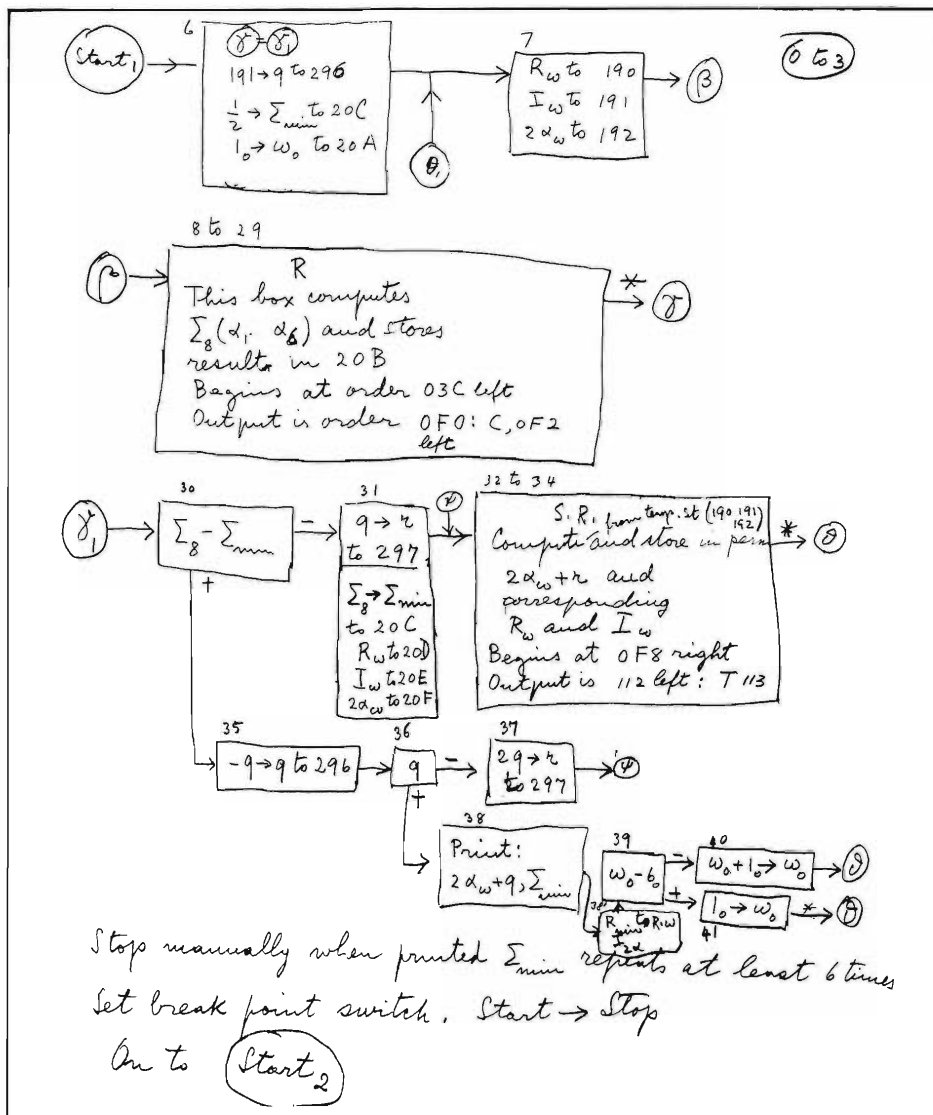 Start₁
6
γ = γ₁
191 → q to 296
1/2 → Σmin to 20C
1₀ → ω₀ to 20A
θ₁
7
Rω to 190
Iω to 191
2αω to 192
β
0 to 3
8 to 29
β
R
This box computes
Σ₈(α₁. α₆) and stores
results in 20B
Begins at order 03C left
Output is order 0F0: C, 0F2
left
*
γ
γ₁
30
Σ₈ - Σmin
−
+
31
q → r
to 297
Σ₈ → Σmin
to 20C
Rω to 20D
Iω to 20E
2αω to 20F
ψ
32 to 34
S.R. from temp. st (190 191
192)
Compute and store in perm
2αω + r and
corresponding
Rω and Iω
Begins at 0F8 right
Output is 112 left: T 113
*
θ
35
-q → q to 296
36
q
−
+
37
2q → r
to 297
ψ
38
Print:
2αω + q, Σmin
38'
Rmin to R.ω
I
2α
39
ω₀ - 6₀
−
+
40
ω₀ + 1₀ → ω₀
θ
41
1₀ → ω₀
*
θ
Stop manually when printed Σmin repeats at least 6 times
Set break point switch. Start → Stop
On to Start₂